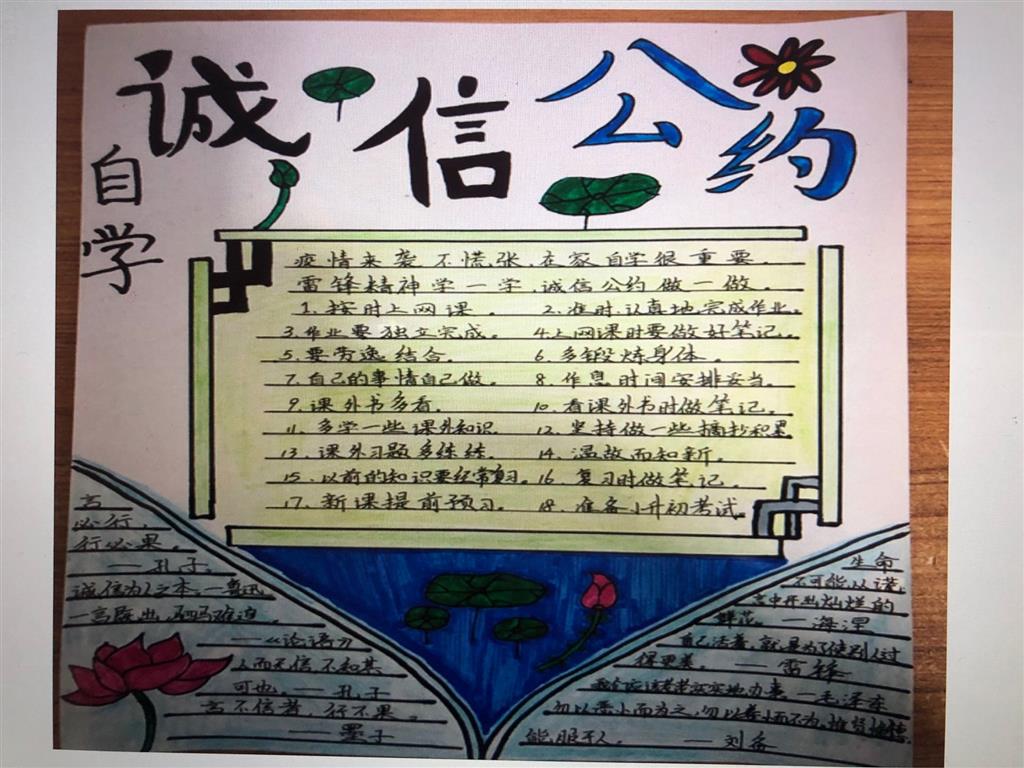 诚信公约
自学
疫情来袭不慌张,在家自学很重要.
雷锋精神学一学,诚信公约做一做.
1.按时上网课. 2.准时,认真地完成作业。
3.作业要独立完成。 4.上网课时要做好笔记.
5.要劳逸结合. 6.多锻炼身体.
7.自己的事情自己做. 8.作息时间安排妥当.
9.课外书多看. 10.看课外书时做笔记.
11.多学一些课外知识. 12.坚持做一些摘抄积累
13.课外习题多练练. 14.温故而知新.
15.以前的知识要经常复习. 16.复习时做笔记.
17.新课提前预习. 18.准备小升初考试
言
必行,
行必果。
——孔子
诚信为人之本.—鲁迅
一言既出,驷马难追
——《论语》
人而无信,不知其
可也。——孔子
言不信者,行不果。
——墨子
生命
不可能从谎
言中开出灿烂的
鲜花。——海涅
自己活着,就是为了使别人过
得更美。——雷锋
我们应该老老实实地办事.—毛泽东
勿以恶小而为之,勿以善小而不为.惟贤惟德,
能服于人。——刘备